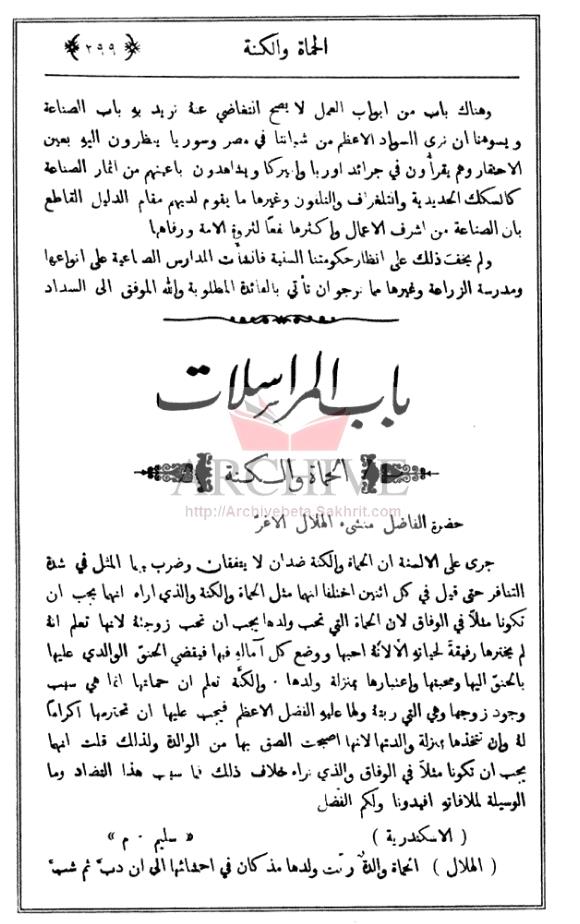 الحماة والكنة
﴿ ٢٩٩ ﴾
وهناك باب من ابواب العمل لا يصح التغاضي عنهُ نريد بهِ باب الصناعة
ويسوءنا ان نرى السواد الاعظم من شباننا في مصر وسوريا ينظرون اليهِ بعين
الاحتقار وهم يقرأون في جرائد اوربا واميركا ويشاهدون باعينهم من اثمار الصناعة
كالسكك الحديدية والتلغراف والتلفون وغيرها ما يقوم لديهم مقام الدليل القاطع
بان الصناعة من اشرف الاعمال واكثرها نفعًا لثروة الامة ورفاهها
ولم يخفَ ذلك على انظار حكومتنا السنية فانشأت المدارس الصناعية على انواعها
ومدرسة الزراعة وغيرها مما نرجو ان تأتي بالفائدة المطلوبة والله الموفق الى السداد
باب المراسلات
الحماة والكنة
ARCHIVE
http://Archivebeta.Sakhrit.com
حضرة الفاضل منشىء الهلال الاغرّ
جرى على الالسنة ان الحماة والكنة ضدان لا يتفقان وضرب بهما المثل في شدة
التنافر حتى قيل في كل اثنين اختلفا انهما مثل الحماة والكنة والذي اراه انهما يجب ان
تكونا مثلاً في الوفاق لان الحماة التي تحب ولدها يجب ان تحب زوجتهُ لانها تعلم انهُ
لم يخترها رفيقة لحياتهِ الا لانهُ احبها ووضع كل آمالهِ فيها فيقضي الحنو الوالدي عليها
بالحنو اليها ومحبتها واعتبارها بمنزلة ولدها ٠ والكنَّة تعلم ان حماتها انما هي سبب
وجود زوجها وهي التي ربتهُ ولها عليهِ الفضل الاعظم فيجب عليها ان تحترمها اكرامًا
لهُ وان تتخذها بمنزلة والدتها لانها اصبحت الصق بها من الوالدة ولذلك قلت انهما
يجب ان تكونا مثلاً في الوفاق والذي نراه خلاف ذلك فما سبب هذا التضاد وما
الوسيلة لملافاتهِ افيدونا ولكم الفضل
( الاسكندرية ) « سليم ٠ م »
( الهلال ) الحماة والدةٌ ربَّت ولدها مذ كان في احشائها الى ان دبَّ ثم شبَّ